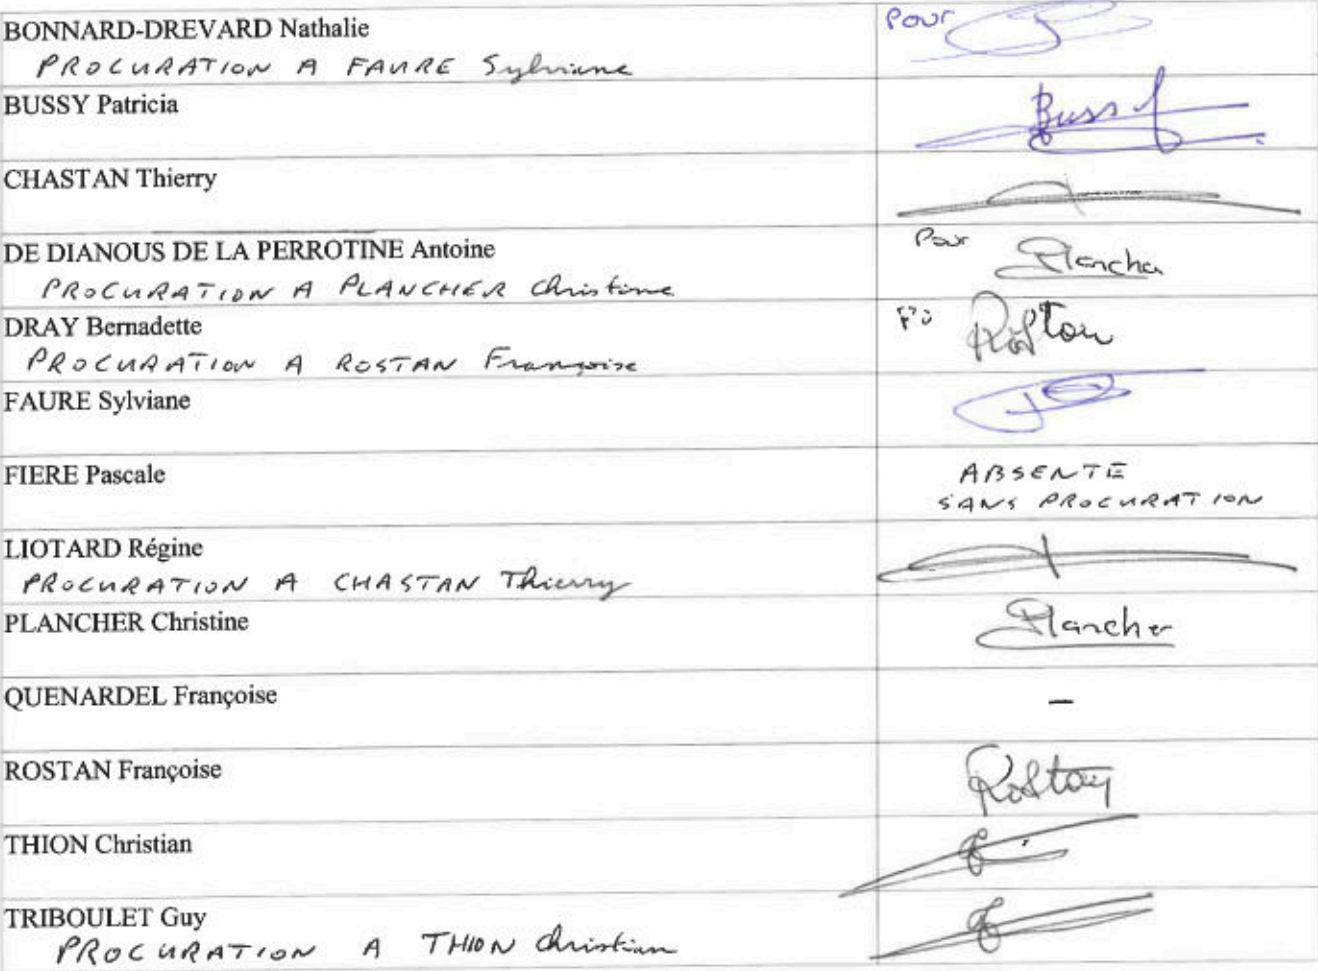 BONNARD-DREVARD Nathalie
Pour
PROCURATION A FAURE Sylviane
BUSSY Patricia
Bussy
CHASTAN Thierry
DE DIANOUS DE LA PERROTINE Antoine
Pour Plancher
PROCURATION A PLANCHER Christine
DRAY Bernadette
Po Rostan
PROCURATION A ROSTAN Françoise
FAURE Sylviane
FIERE Pascale
ABSENTE
SANS PROCURATION
LIOTARD Régine
PROCURATION A CHASTAN Thierry
PLANCHER Christine
Plancher
QUENARDEL Françoise
–
ROSTAN Françoise
Rostan
THION Christian
TRIBOULET Guy
PROCURATION A THION Christian